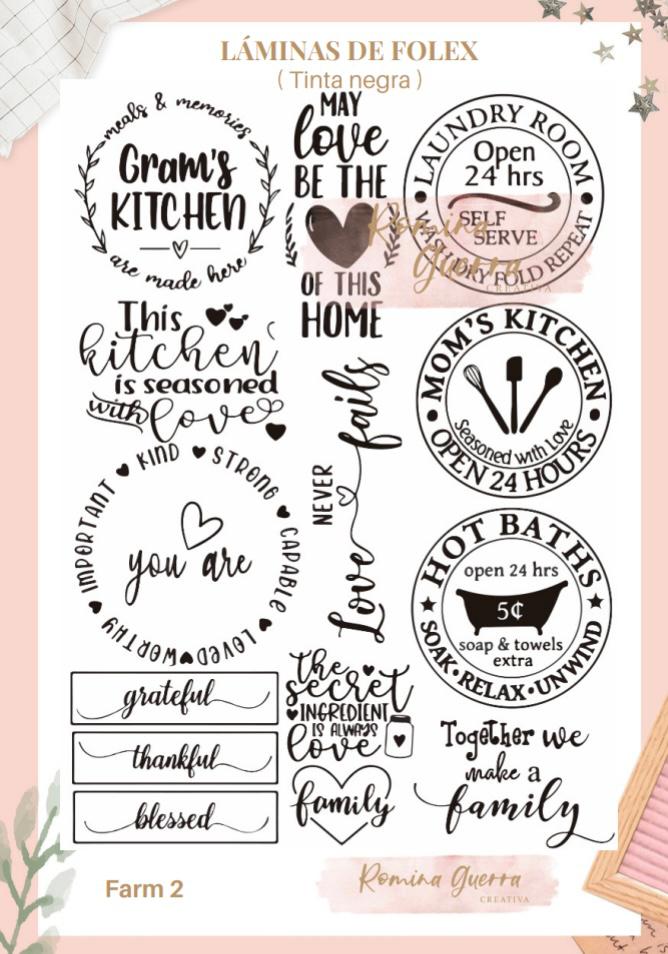 LÁMINAS DE FOLEX
( Tinta negra )
meals & memories
Gram's
KITCHEN
are made here
MAY
love
BE THE
OF THIS
HOME
LAUNDRY ROOM
Open
24 hrs
SELF
SERVE
WASH DRY FOLD REPEAT
Romina
Guerra
CREATIVA
This
kitchen
is seasoned
with love
Love NEVER fails
MOM'S KITCHEN
Seasoned with Love
OPEN 24 HOURS
KIND STRONG CAPABLE LOVED WORTHY IMPORTANT
you are
HOT BATHS
open 24 hrs
5¢
soap & towels
extra
SOAK•RELAX•UNWIND
grateful
thankful
blessed
the
secret
INGREDIENT
IS ALWAYS
love
family
Together we
make a
family
Farm 2
Romina Guerra
CREATIVA